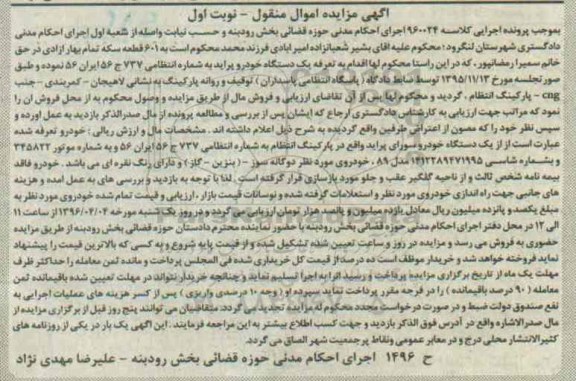 آگهی مزایده اموال منقول - نوبت اول
بموجب پرونده اجرایی کلاسه ۹۶۰۰۲۴ اجرای احکام مدنی حوزه قضائی بخش رودبنه و حسب نیابت واصله از شعبه اول اجرای احکام مدنی
دادگستری شهرستان لنگرود؛ محکوم علیه آقای بشیر شعبانزاده امیرآبادی فرزند محمد محکوم است به ۶۰۱ قطعه سکه تمام بهار آزادی در حق
خانم سمیرا رمضانپور، که در این راستا محکوم لها اقدام به تعرفه یک دستگاه خودرو پراید به شماره انتظامی ۷۳۷ ج ۵۶ ایران ۵۶ نموده و طبق
صورتجلسه مورخ ۱۳۹۵/۱۱/۱۳ توسط ضابط دادگاه (پاسگاه انتظامی پاسداران) توقیف و روانه پارکینگ به نشانی لاهیجان - کمربندی - جنب
cng - پارکینگ انتظام. گردید و محکوم لها پس از آن تقاضای ارزیابی و فروش مال از طریق مزایده و وصول محکوم به از محل فروش آن را
نمود که مراتب جهت ارزیابی به کارشناس دادگستری ارجاع که ایشان پس از بررسی و مطالعه پرونده از مال صدرالذکر بازدید به عمل آورده و
سپس نظر خود را که مصون از اعتراض طرفین واقع گردیده به شرح ذیل اعلام داشته اند. مشخصات مال و ارزش ریالی: خودرو تعرفه شده
عبارت است از از یک دستگاه خودرو سواری پراید واقع در پارکینگ انتظام به شماره انتظامی ۷۳۷ ج ۵۶ ایران ۵۶ و به شماره موتور ۳۴۵۸۲۲
و بشماره شاسی ۱۴۱۲۲۸۹۴۷۱۹۹۵ مدل ۸۹، خودروی مورد نظر دوگانه سوز - (بنزین - گاز) و دارای رنگ نقره ای می باشد. خودرو فاقد
بیمه نامه شخص ثالث و از ناحیه گلگیر عقب و جلو مورد بازسازی قرار گرفته است. لذا با توجه به بازدید و بررسی های به عمل آمده و هزینه
های جانبی جهت راه اندازی خودروی مورد نظر و استعلامات گرفته شده و نوسانات قیمت بازار، ارزیابی و قیمت تمام شده خودروی مورد نظر به
مبلغ یکصد و پانزده میلیون ریال معادل یازده میلیون و پانصد هزار تومان ارزیابی می گردد و در روز یک شنبه مورخه ۱۳۹۶/۰۴/۰۴ از ساعت ۱۱
الی ۱۲ در محل دفتر اجرای احکام مدنی حوزه قضائی بخش رودبنه با حضور نماینده محترم دادستان حوزه قضائی بخش رودبنه از طریق مزایده
حضوری به فروش می رسد و مزایده در روز و ساعت تعیین شده تشکیل شده و از قیمت پایه شروع و به کسی که بالاترین قیمت را پیشنهاد
نماید فروخته خواهد شد و خریدار موظف است ده درصد از قیمت کل خریداری شده فی المجلس پرداخت و مانده ثمن معامله را حداکثر ظرف
مهلت یک ماه از تاریخ برگزاری مزایده پرداخت و رسید آنرا به اجرا تسلیم نماید و چنانچه خریدار نتواند در مهلت تعیین شده باقیمانده ثمن
معامله (۹۰ درصد باقیمانده) را در فرجه مقرر پرداخت نماید سپرده او (وجه ۱۰ درصدی واریزی) پس از کسر هزینه های عملیات اجرایی به
نفع صندوق دولت ضبط و در صورت درخواست مجدد محکوم له مزایده تجدید می گردد. متقاضیان می توانند پنج روز قبل از برگزاری مزایده از
مال صدرالاشاره واقع در آدرس فوق الذکر بازدید و جهت کسب اطلاع بیشتر به این مراجعه فرمایند. این آگهی یک بار در یکی از روزنامه های
کثیرالانتشار محلی درج و در معابر عمومی و نقاط پرجمعیت شهر الصاق می گردد.
ح ۱۴۹۶ اجرای احکام مدنی حوزه قضائی بخش رودبنه - علیرضا مهدی نژاد